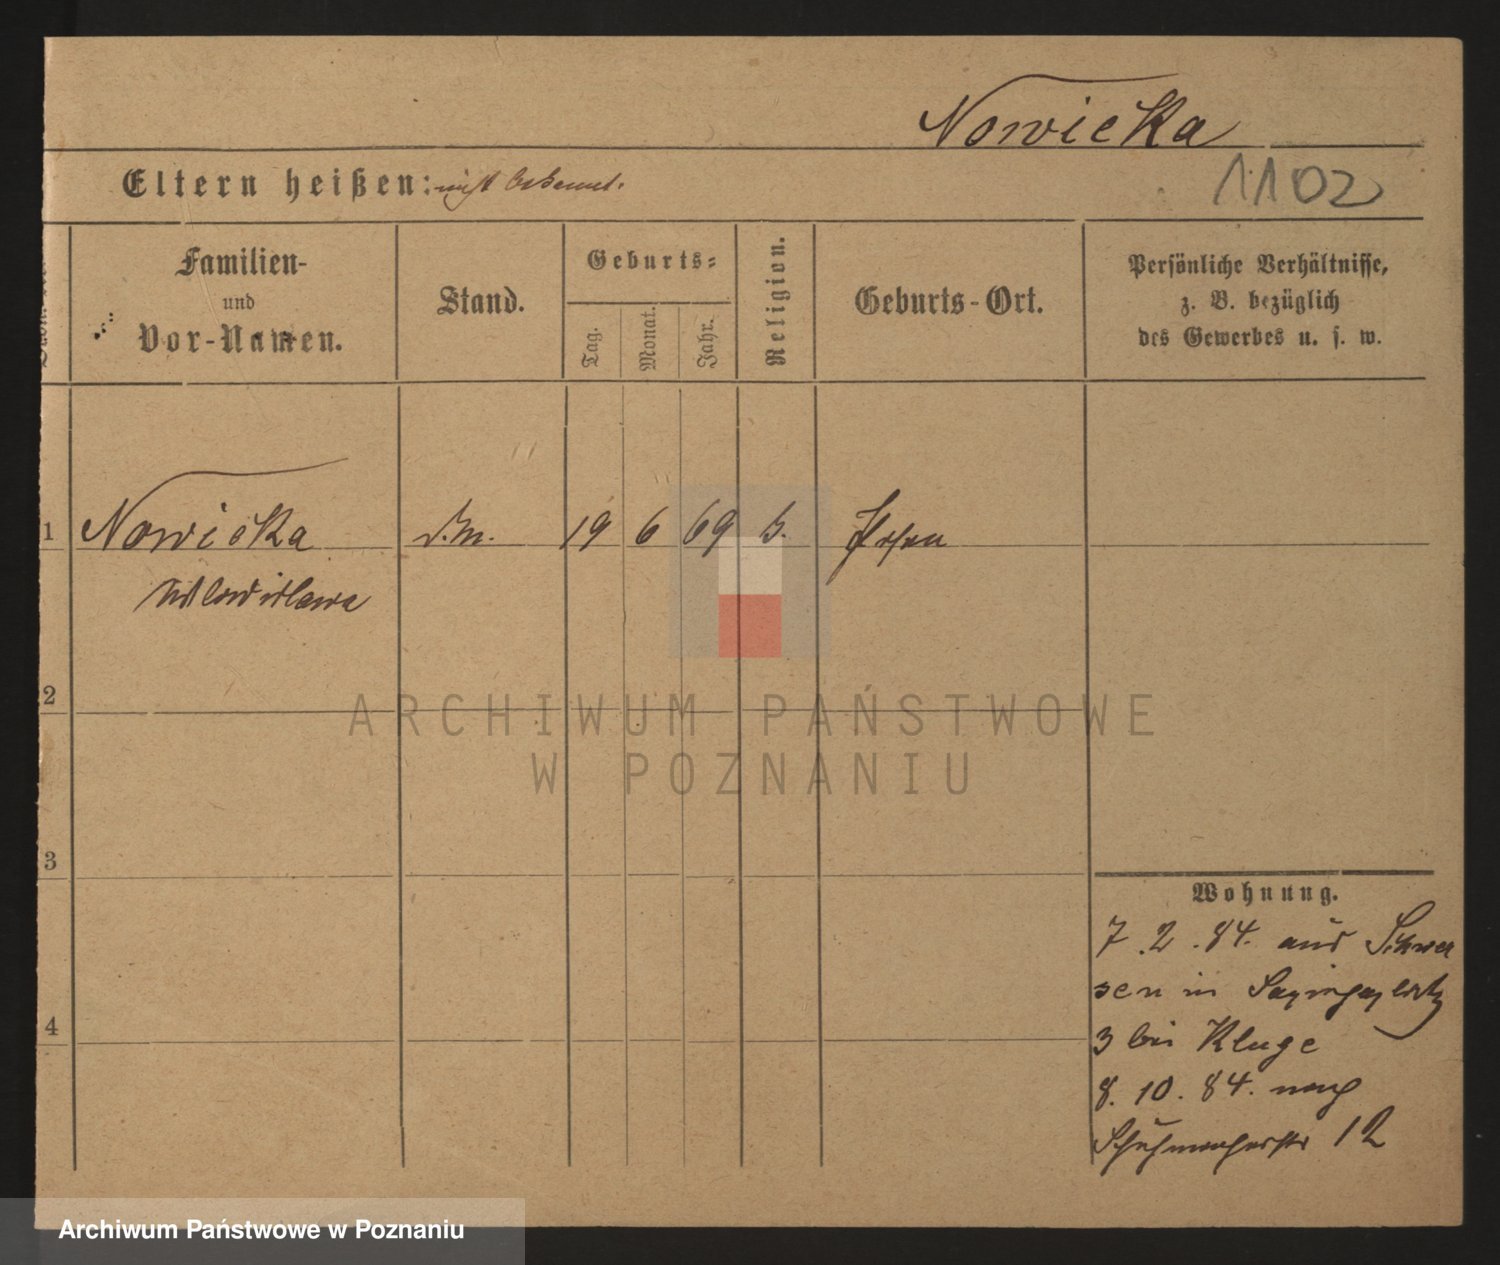 Nowicka
1102
Eltern heißen: nicht bekannt.
Familien-
und
Vor-Namen.
Stand.
Geburts=
Tag.
Monat.
Jahr.
Religion.
Geburts-Ort.
Persönliche Verhältnisse,
z. B. bezüglich
des Gewerbes u. s. w.
1 Nowicka 19 6 69 Posen
2
3
4
ARCHIWUM PAŃSTWOWE
W POZNANIU
Wohnung.
7.2.84. aus Schwer
senz in Sapiehaplatz
3 bei Kluge
8.10.84. nach
Schuhmacherstr 12
Archiwum Państwowe w Poznaniu